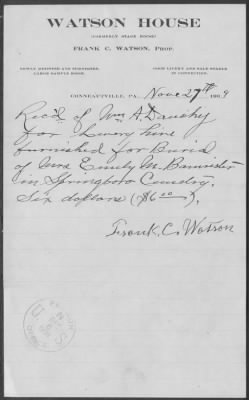 WATSON HOUSE
(FORMERLY STAGE HOUSE)
FRANK C. WATSON, PROP.
NEWLY REFITTED AND FURNISHED.
LARGE SAMPLE ROOM.
GOOD LIVERY AND SALE STABLE
IN CONNECTION.
CONNEAUTVILLE, PA., Nove 27th 1909
Rec'd of Wm A.
for Livery hire
furnished for Burial
of Mrs Emily M. Bannister
in Springboro Cemetry.
Six dollars ($6.00).
Frank C. Watson